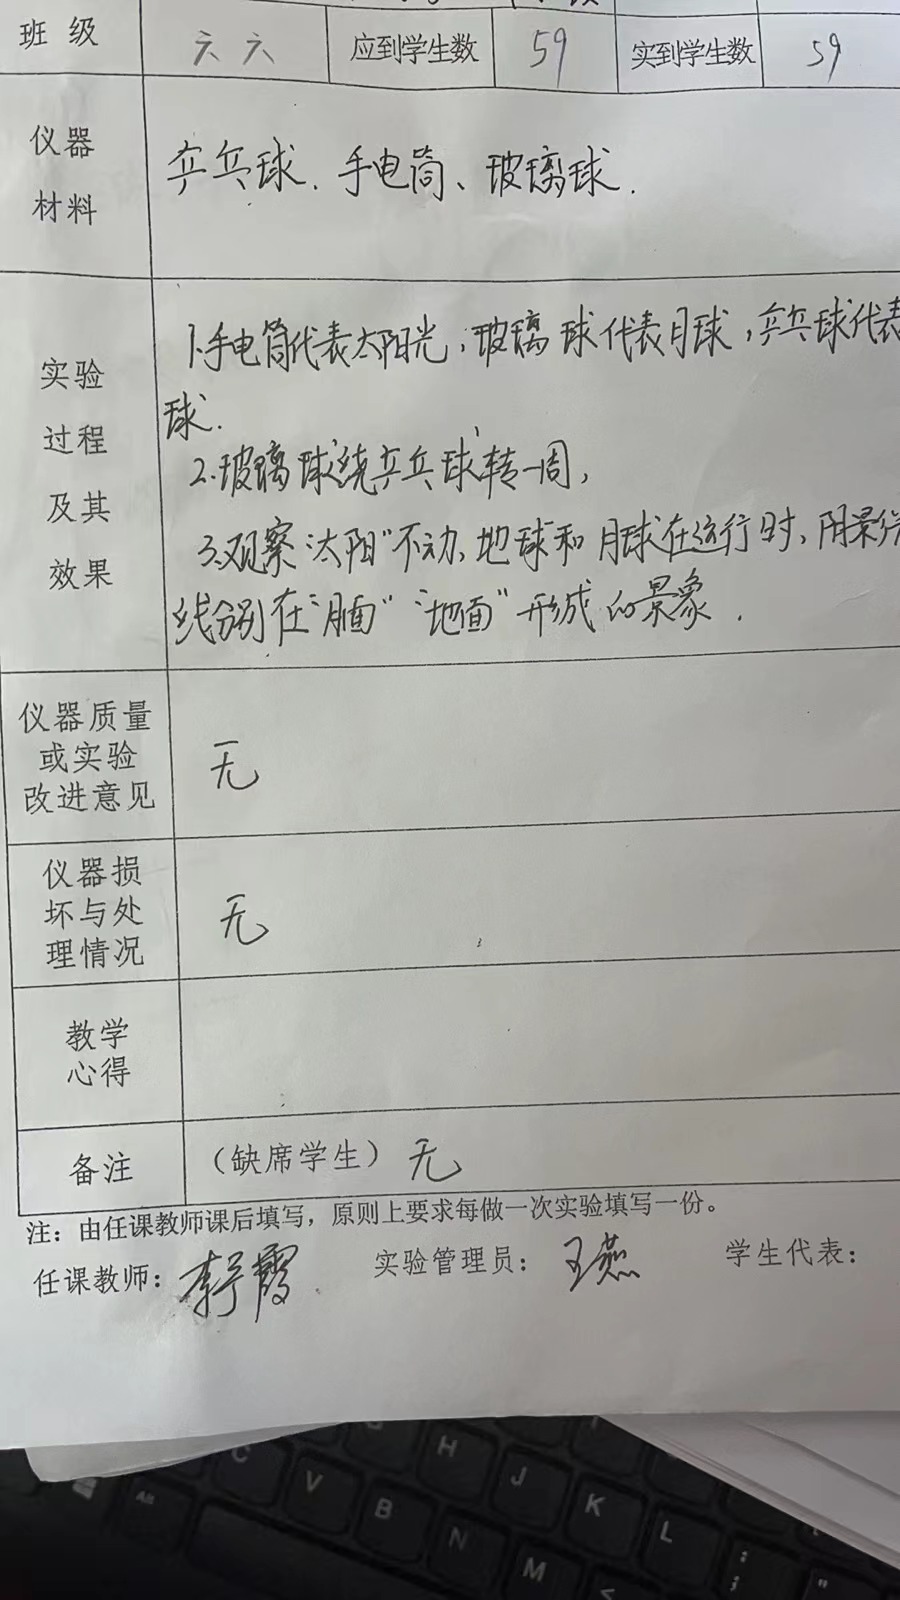 班级 六六 应到学生数 59 实到学生数 59
仪器
材料
乒乓球、手电筒、玻璃球.
实验
过程
及其
效果
1.手电筒代表太阳光,玻璃球代表月球,乒乓球代表
球.
2.玻璃球绕乒乓球转一周,
3.观察"太阳"不动、地球和月球在运行时、阴影
线分别在"月面""地面"形成的景象.
仪器质量
或实验
改进意见
无
仪器损
坏与处
理情况
无
教学
心得
备注 (缺席学生) 无
注:由任课教师课后填写,原则上要求每做一次实验填写一份。
任课教师: 李霞 实验管理员: 王燕 学生代表:
C
V
B
N
M
H
J
K
L
Alt
;
:
"
<